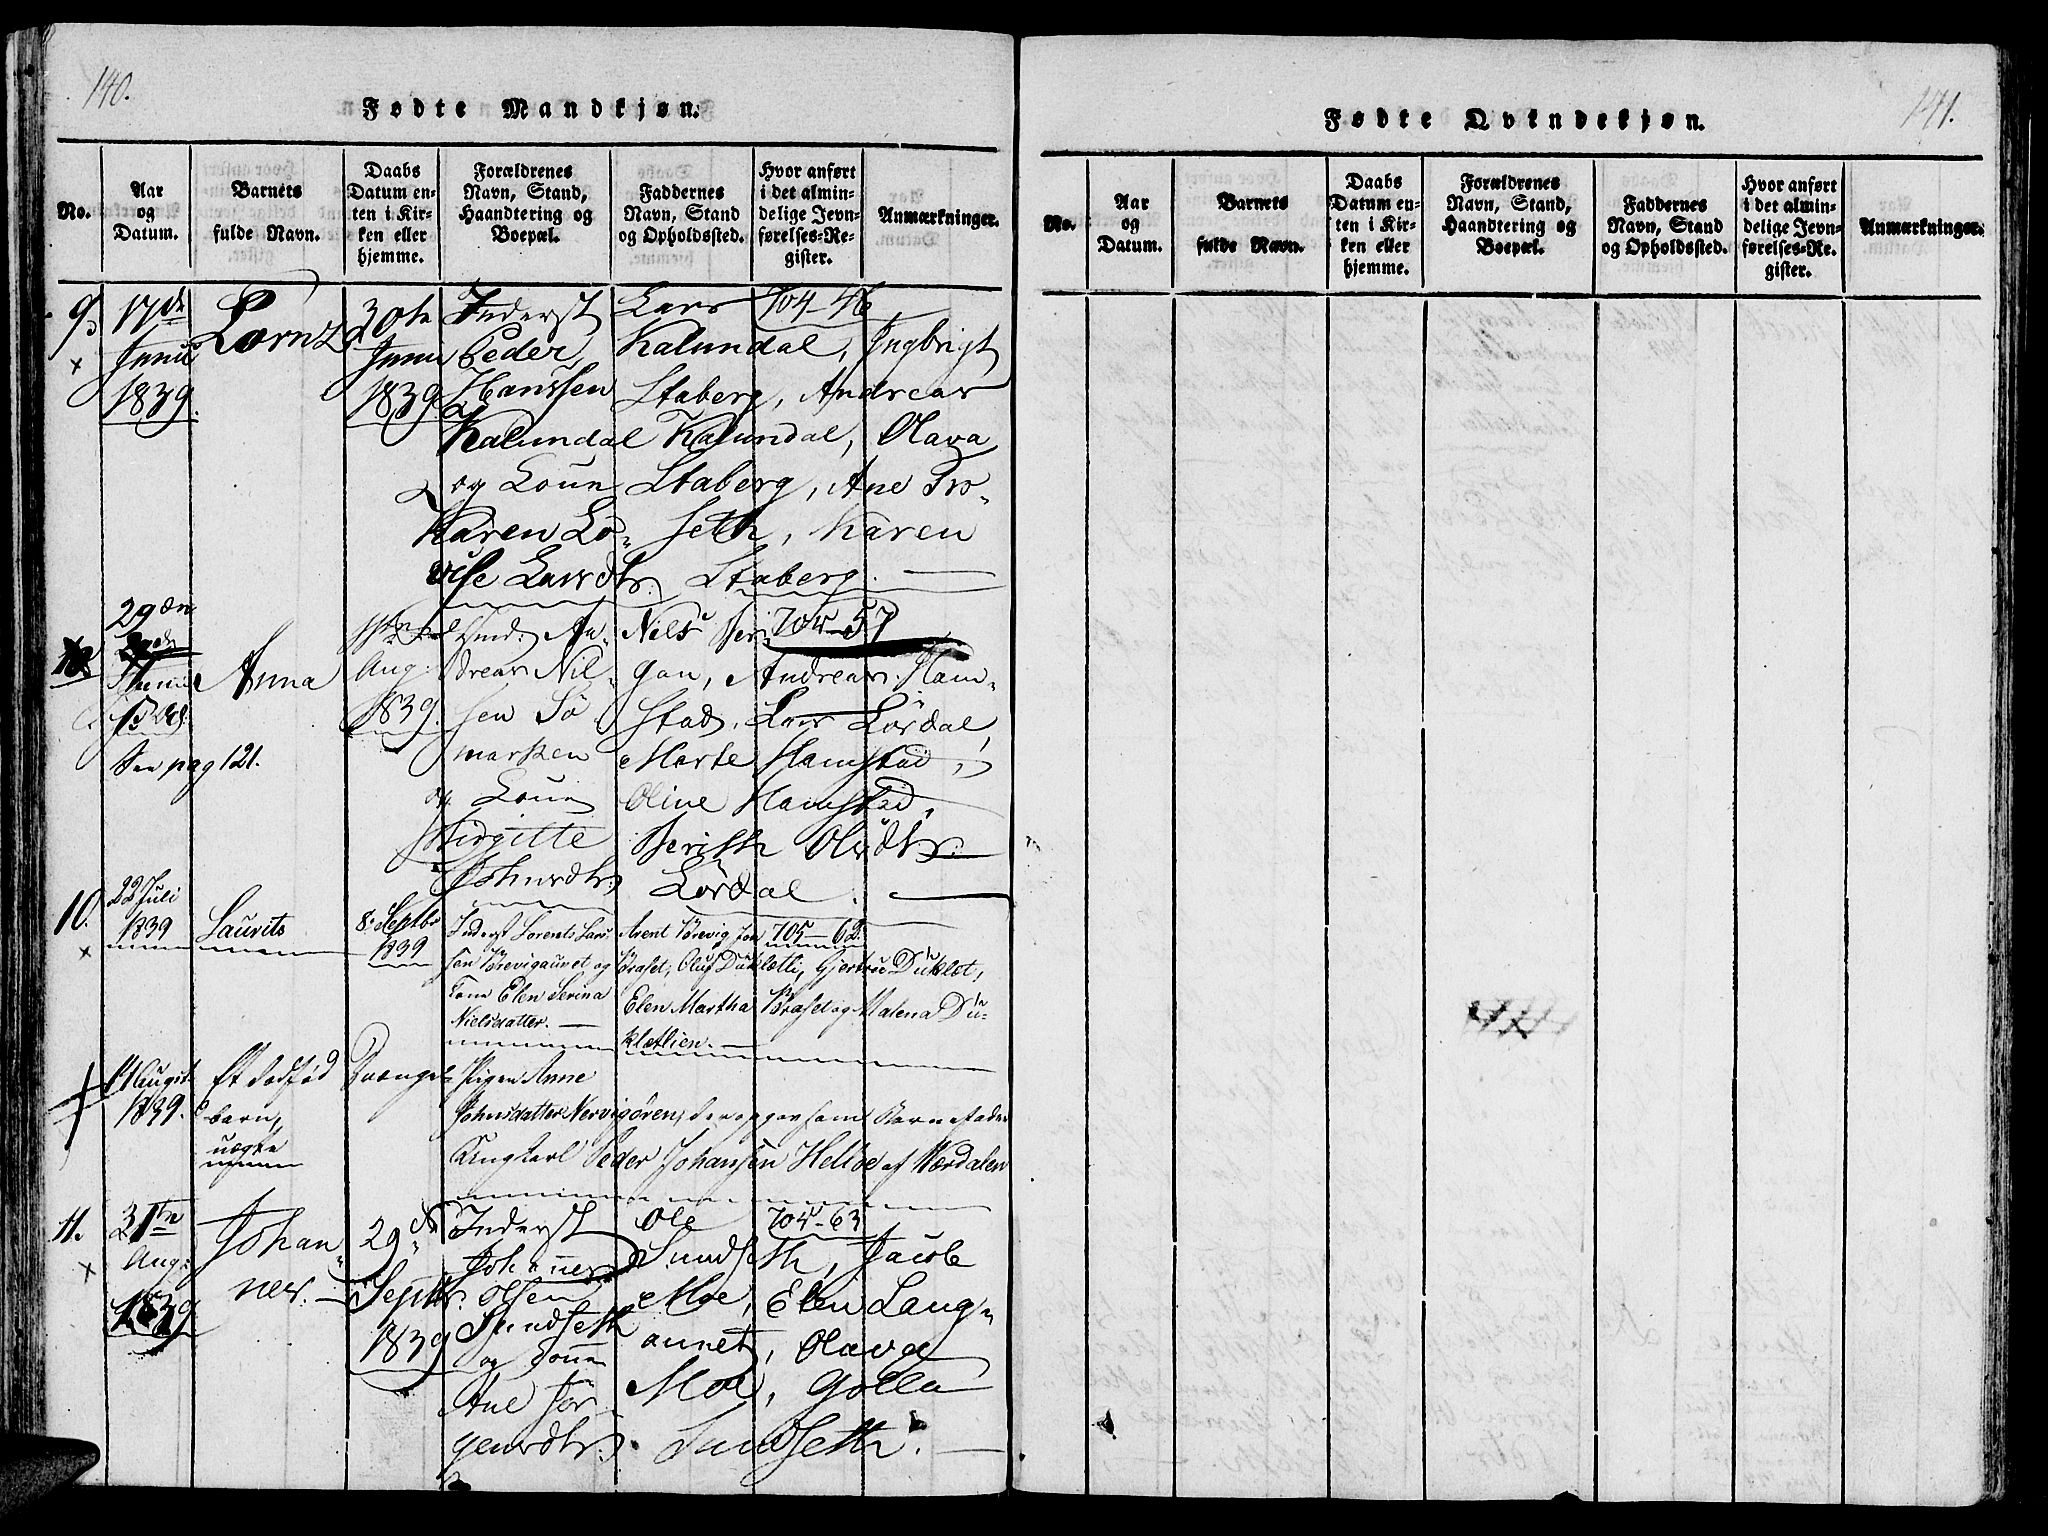 140.
Fødte Mandkjøn.
No.
Aar
og
Datum.
Barnets
fulde Navn.
Daabs
Datum en-
ten i Kir-
ken eller
hjemme.
Forældrenes
Navn, Stand,
Haandtering og
Boepæl.
Faddernes
Navn, Stand
og Opholdssted.
Hvor anført
i det almin-
delige Jevn-
førelses-Re-
gister.
Anmærkninger.
9.
17de
Junii
1839.
Lornz
30te
Junii
1839.
Inderst
Peder
Hanssen
Kalundal
og Kone
Karen Lo-
vise Larsdtr.
Lars 704-46
Kalundal, Ingbrigt
Staberg, Andreas
Kalundal, Olava
Staberg, Ane Tro-
seth, Karen
Staberg.
29de
Junii
Anna
11te
Aug:
1839.
Huusmd: An-
dreas Nil-
sen Sö
marken
og Kone
Birgitte
Johnsdtr.
Nils Ber- 705-57
gan, Andreas Ham-
stad, Lars Lördal,
Marte Hamstad,
Oline Hamstad,
Berith Olsdtr.
Lördal.
See pag 121.
10.
22 Juli
1839
Laurits
8. Septbr
1839
Inderst Lorents Lars-
sen Brevigaunet og
Kone Elen Serina
Nielsdatter.
Arent Brevig, Jon 705-62.
Braset, Oluf Duklætli, Gjertrue Duklæt,
Elen Martha Braset og Malena Du-
klætlien.
11 August
1839.
Et dødfød
barn,
uægte
Pigen Anne
Johnsdatter Nervigören, der opgav som Barnefader
Ungkarl Peder Johansen Helloe af Værdalen
11.
31te
Aug:
1839
Johan-
nes.
29de
Septbr.
1839
Inderst
Johannes
Olsen
Sundseth
og Kone
Ane Jör-
gensdtr.
Ole 705-63
Sundseth, Jacob
Moe, Elen Lang-
aunet, Olava
Moe, Golla
Sundseth.
141.
Fødte Qvindekjøn.
No.
Aar
og
Datum.
Barnets
fulde Navn.
Daabs
Datum en-
ten i Kir-
ken eller
hjemme.
Forældrenes
Navn, Stand,
Haandtering og
Boepæl.
Faddernes
Navn, Stand
og Opholdssted.
Hvor anført
i det almin-
delige Jevn-
førelses-Re-
gister.
Anmærkninger.